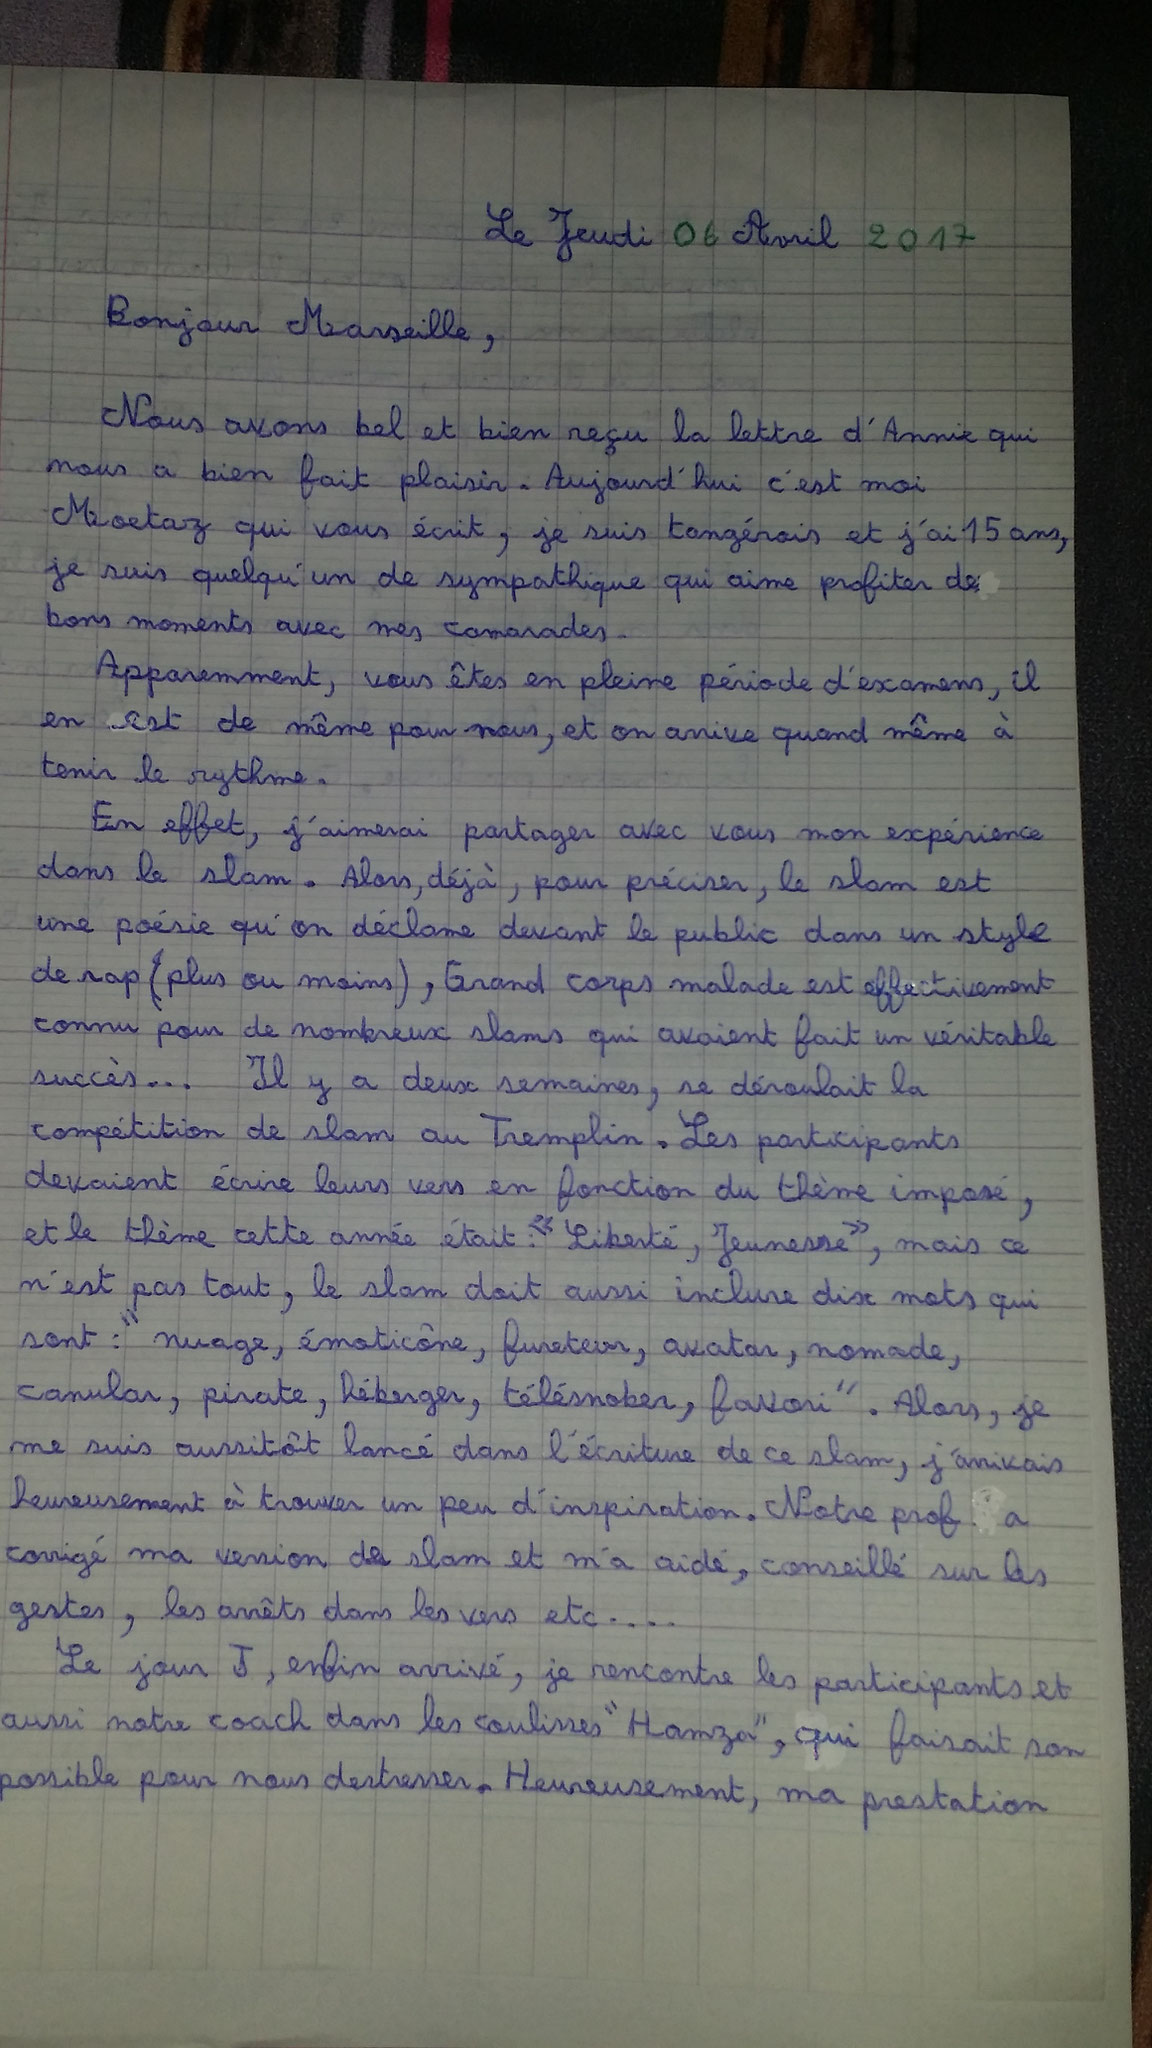 Le Jeudi 06 Avril 2017
Bonjour Marseille,
Nous avons bel et bien reçu la lettre d'Annie qui
nous a bien fait plaisir. Aujourd'hui c'est moi
Moetaz qui vous écrit, je suis tangérois et j'ai 15 ans,
je suis quelqu'un de sympathique qui aime profiter de
bons moments avec mes camarades.
Apparemment, vous êtes en pleine période d'examens, il
en est de même pour nous, et on arrive quand même à
tenir le rythme.
En effet, j'aimerai partager avec vous mon expérience
dans le slam. Alors, déjà, pour préciser, le slam est
une poésie qu'on déclame devant le public dans un style
de rap (plus ou moins), Grand corps malade est effectivement
connu pour de nombreux slams qui avaient fait un véritable
succès... Il y a deux semaines, se déroulait la
compétition de slam au Tremplin. Les participants
devaient écrire leurs vers en fonction du thème imposé,
et le thème cette année était : «Liberté, Jeunesse», mais ce
n'est pas tout, le slam doit aussi inclure dix mots qui
sont : "nuage, émoticône, fureteur, avatar, nomade,
canular, pirate, héberger, télésnober, favori". Alors, je
me suis aussitôt lancé dans l'écriture de ce slam, j'arrivais
heureusement à trouver un peu d'inspiration. Notre prof a
corrigé ma version de slam et m'a aidé, conseillé sur les
gestes, les arrêts dans les vers etc....
Le jour J, enfin arrivé, je rencontre les participants et
aussi notre coach dans les coulisses "Hamza", qui faisait son
possible pour nous destresser. Heureusement, ma prestation